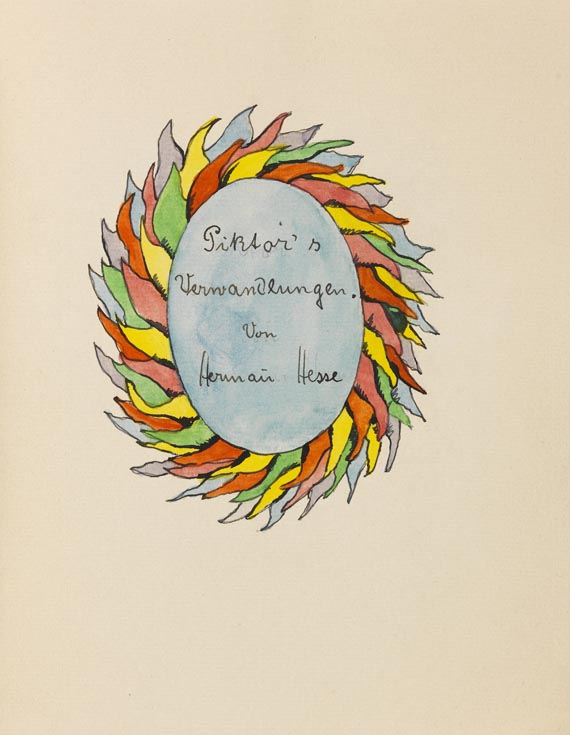 Piktor's
Verwandlungen.
Von
Hermañ Hesse